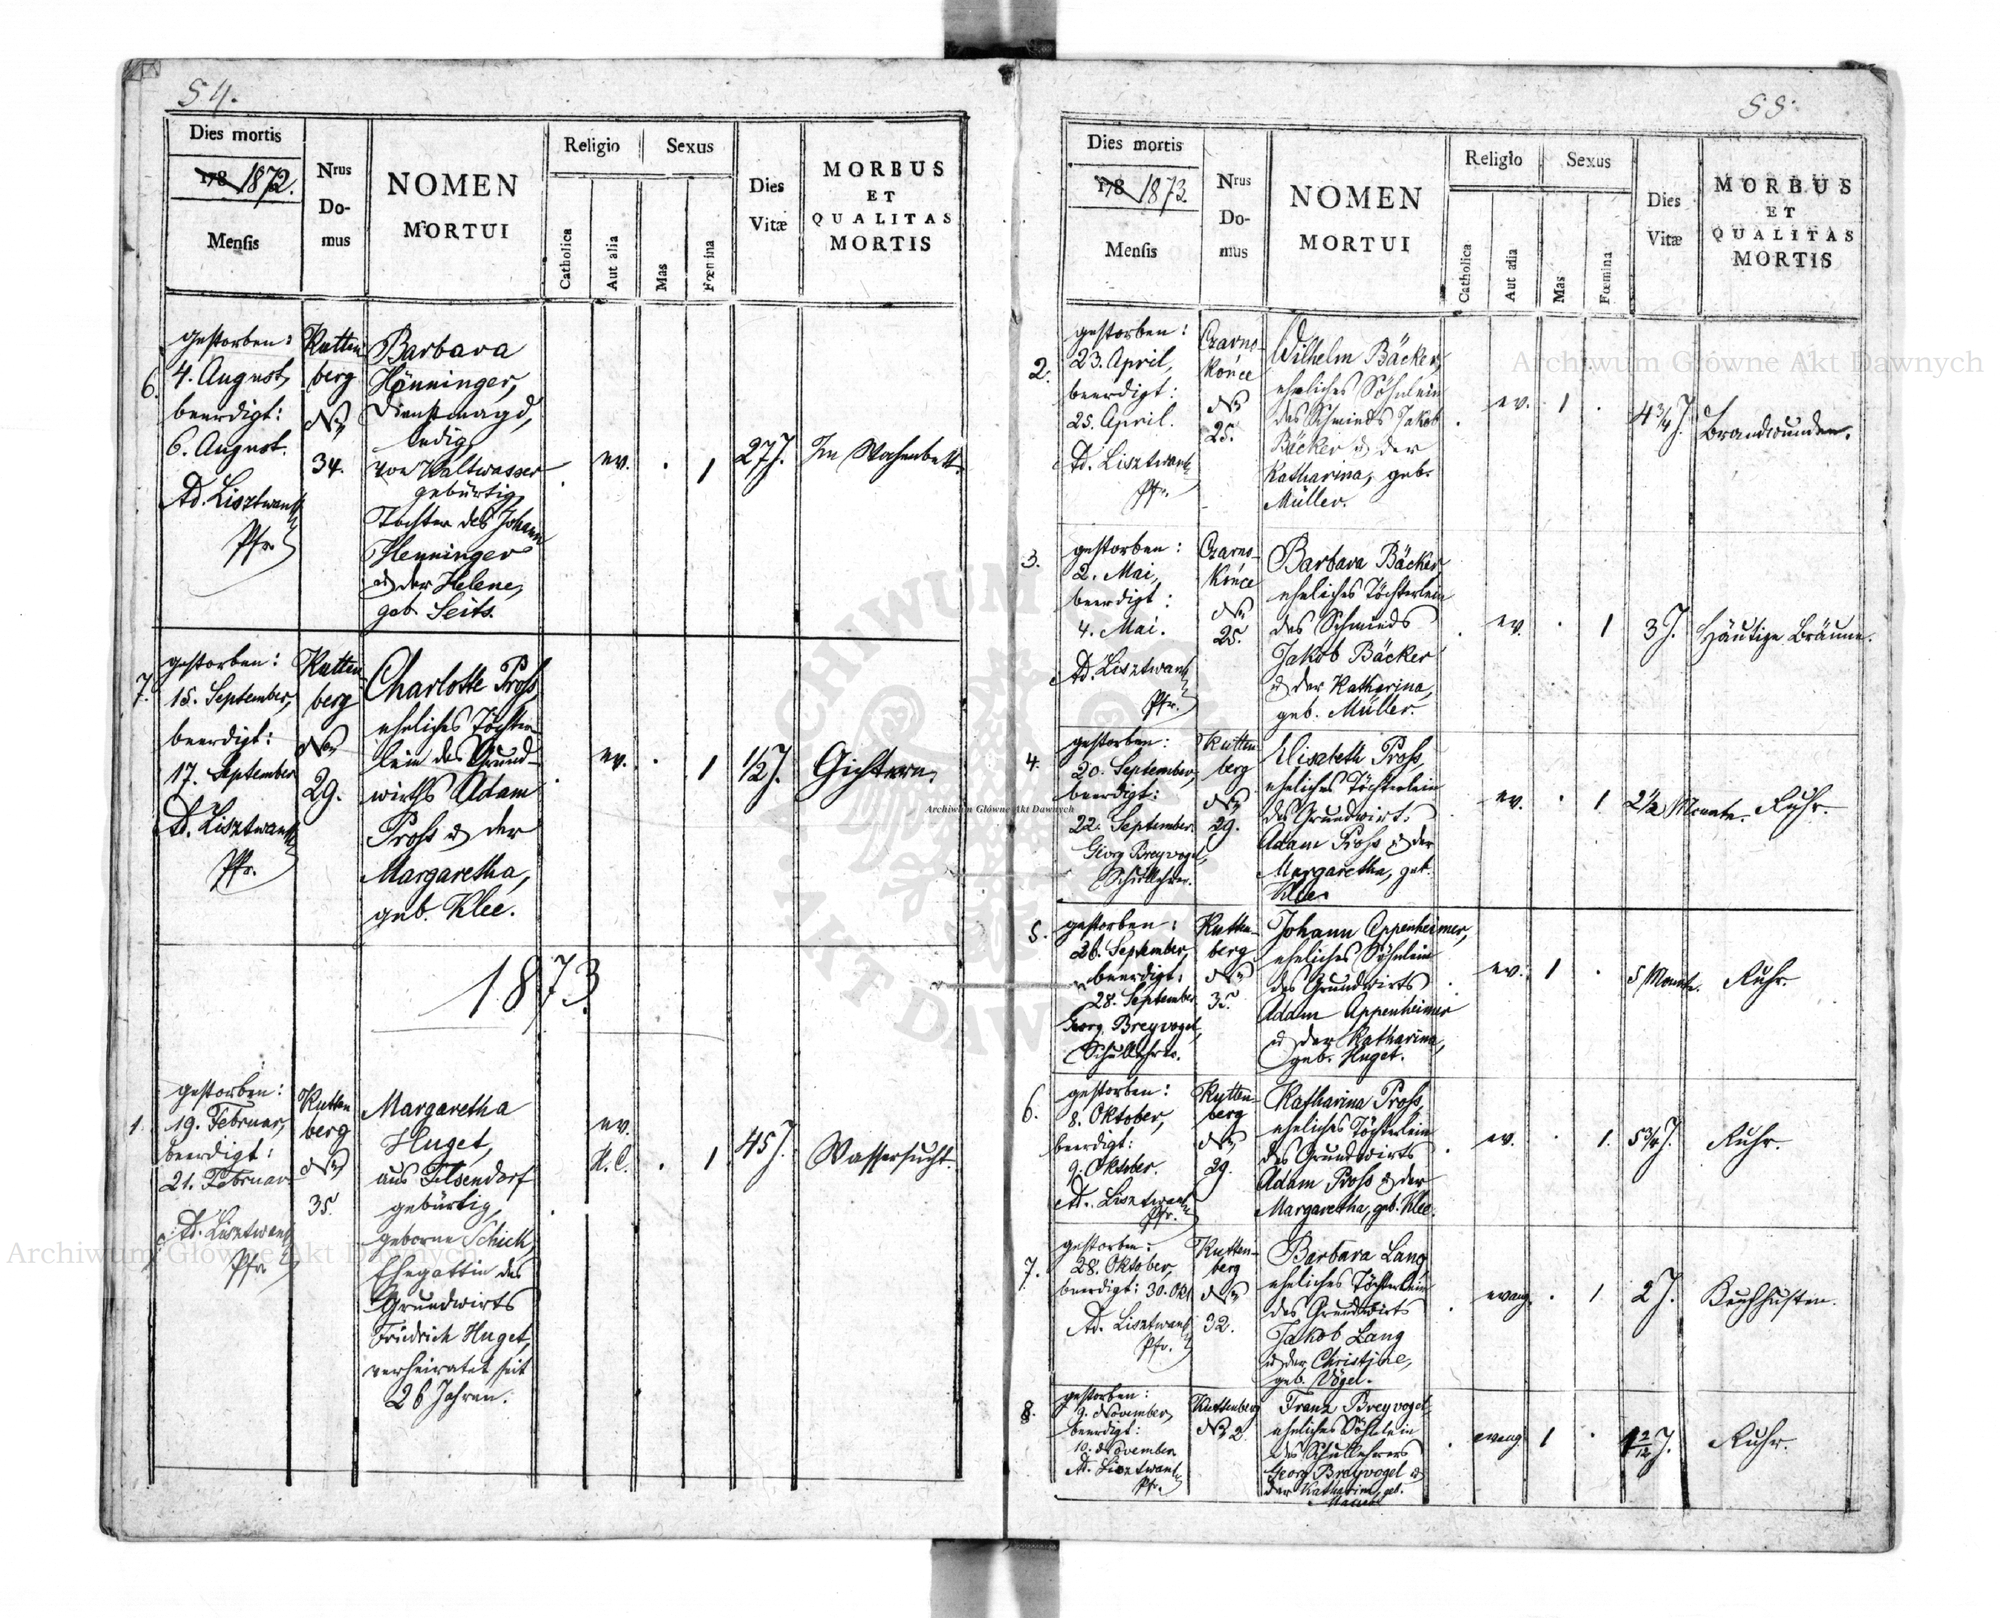 54.
Dies mortis
178 1872.
Mensis
Nrus
Do-
mus
NOMEN
MORTUI
Religio
Catholica
Aut alia
Sexus
Mas
Fœmina
Dies
Vitæ
MORBUS
ET
QUALITAS
MORTIS
6.
gestorben:
4. August,
beerdigt:
6. August.
Ad. Lisztwan
Pfr.
Kutten
berg
No
34.
Barbara
Hönninger,
Dienstmagd,
ledig
von Kaltwasser
gebürtig,
Tochter des Johann
Henninger
u der Helene,
geb. Seits.
ev.
1
27 J.
Im Wochenbett.
7.
gestorben:
15. September,
beerdigt:
17. September
Ad. Lisztwan
Pfr.
Kutten
berg
No
29.
Charlotte Pross,
eheliches Töchter-
lein des Grund-
wirths Adam
Pross u der
Margaretha,
geb. Klee.
ev.
1
1/2 J.
Gichtern.
1873.
1.
gestorben:
19. Februar,
beerdigt:
21. Februar
Ad. Lisztwan
Pfr.
Kutten
berg
No
35.
Margaretha
Huget,
aus Felsendorf
gebürtig,
geborne Schick,
Ehegattin des
Grundwirts
Friedrich Huget,
verheiratet seit
26 Jahren.
ev.
H. C.
1
45 J.
Wassersucht.
55.
Dies mortis
178 1873.
Mensis
Nrus
Do-
mus
NOMEN
MORTUI
Religio
Catholica
Aut alia
Sexus
Mas
Fœmina
Dies
Vitæ
MORBUS
ET
QUALITAS
MORTIS
2.
gestorben:
23. April,
beerdigt:
25. April.
Ad. Lisztwan
Pfr.
Czarno-
końce
No
25.
Wilhelm Bäcker,
eheliches Söhnlein
des Schmieds Jakob
Bäcker u der
Katharina, geb.
Müller.
ev.
1
4 3/4 J.
Brandwunden.
3.
gestorben:
2. Mai,
beerdigt:
4. Mai.
Ad. Lisztwan
Pfr.
Czarno-
końce
No
25.
Barbara Bäcker
eheliches Töchterlein
des Schmieds
Jakob Bäcker
u der Katharina,
geb. Müller.
ev.
1
3 J.
Häutige Bräune.
4.
gestorben:
20. September,
beerdigt:
22. September.
Georg Breyvogel,
Schullehrer.
Kutten
berg
No
29.
Elisabeth Pross,
eheliches Töchterlein
des Grundwirts
Adam Pross u der
Margaretha, geb.
Klee.
ev.
1
2 1/2 Monate.
Ruhr.
5.
gestorben:
26. September,
beerdigt:
28. September
Georg Breyvogel,
Schullehrer.
Kutten-
berg
No
35.
Johann Oppenheimer,
eheliches Söhnlein
des Grundwirts
Adam Oppenheimer
u der Katharina,
geb. Huget.
ev.
1
5 Monate.
Ruhr.
6.
gestorben:
8. Oktober,
beerdigt:
9. Oktober.
Ad. Lisztwan
Pfr.
Kutten-
berg
No
29.
Katharina Pross,
eheliches Töchterlein
des Grundwirts
Adam Pross u der
Margaretha, geb. Klee.
ev.
1.
5 3/4 J.
Ruhr.
7.
gestorben:
28. Oktober,
beerdigt: 30. Okt.
Ad. Lisztwan
Pfr.
Kutten-
berg
No
32.
Barbara Lang
eheliches Töchterlein
des Grundwirts
Jakob Lang
u der Christine,
geb. Vogel.
evang.
1.
2 J.
Keuchhusten.
8.
gestorben:
9. November,
beerdigt:
10. November
Ad. Lisztwan
Pfr.
Kuttenberg
No 2.
Franz Breyvogel
eheliches Söhnlein
des Schullehrers
Georg Breyvogel u
der Katharina, geb.
evang
1
1 2/12 J.
Ruhr.
Archiwum Główne Akt Dawnych
Archiwum Główne Akt Dawnych
Archiwum Główne Akt Dawnych